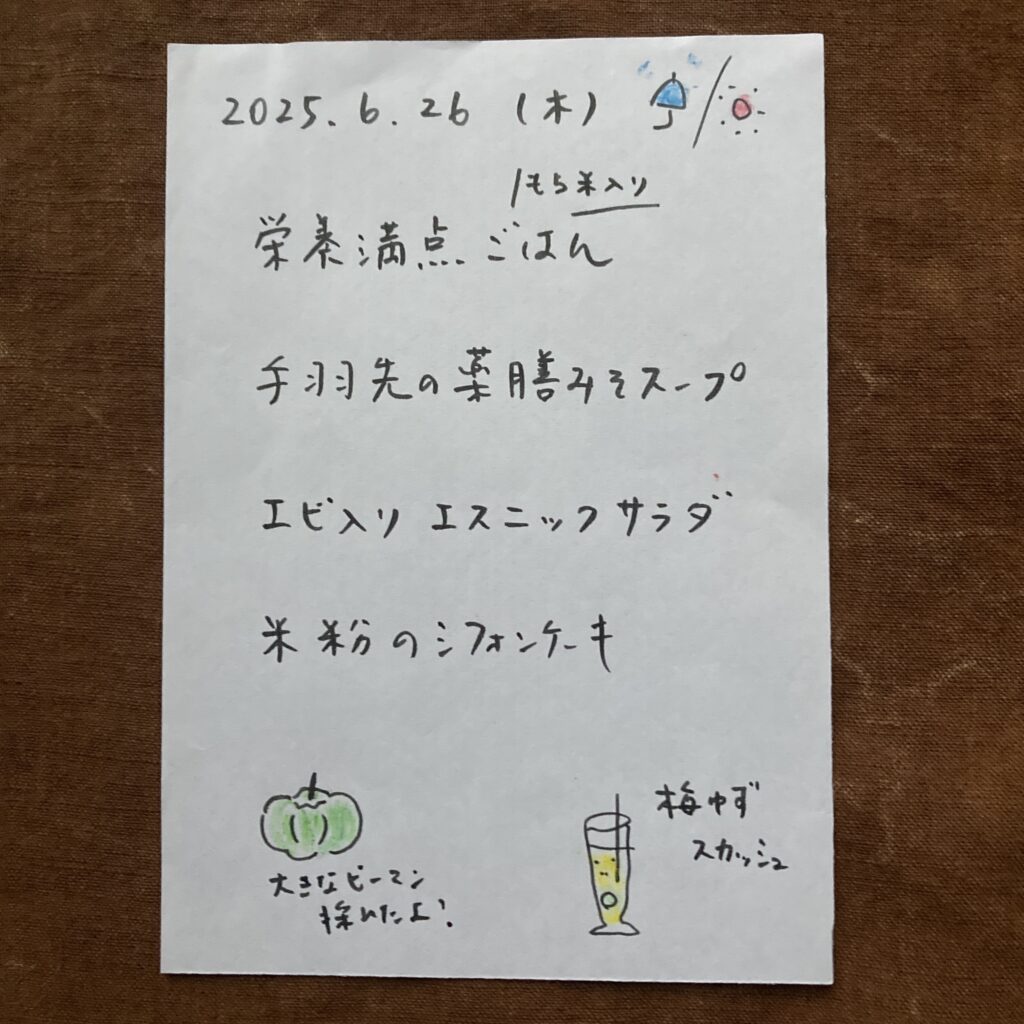 2025.6.26 (木)
もち米入り
栄養満点ごはん
手羽先の薬膳みそスープ
エビ入りエスニックサラダ
米粉のシフォンケーキ
大きなピーマン
採れたよ!
梅ゆず
スカッシュ